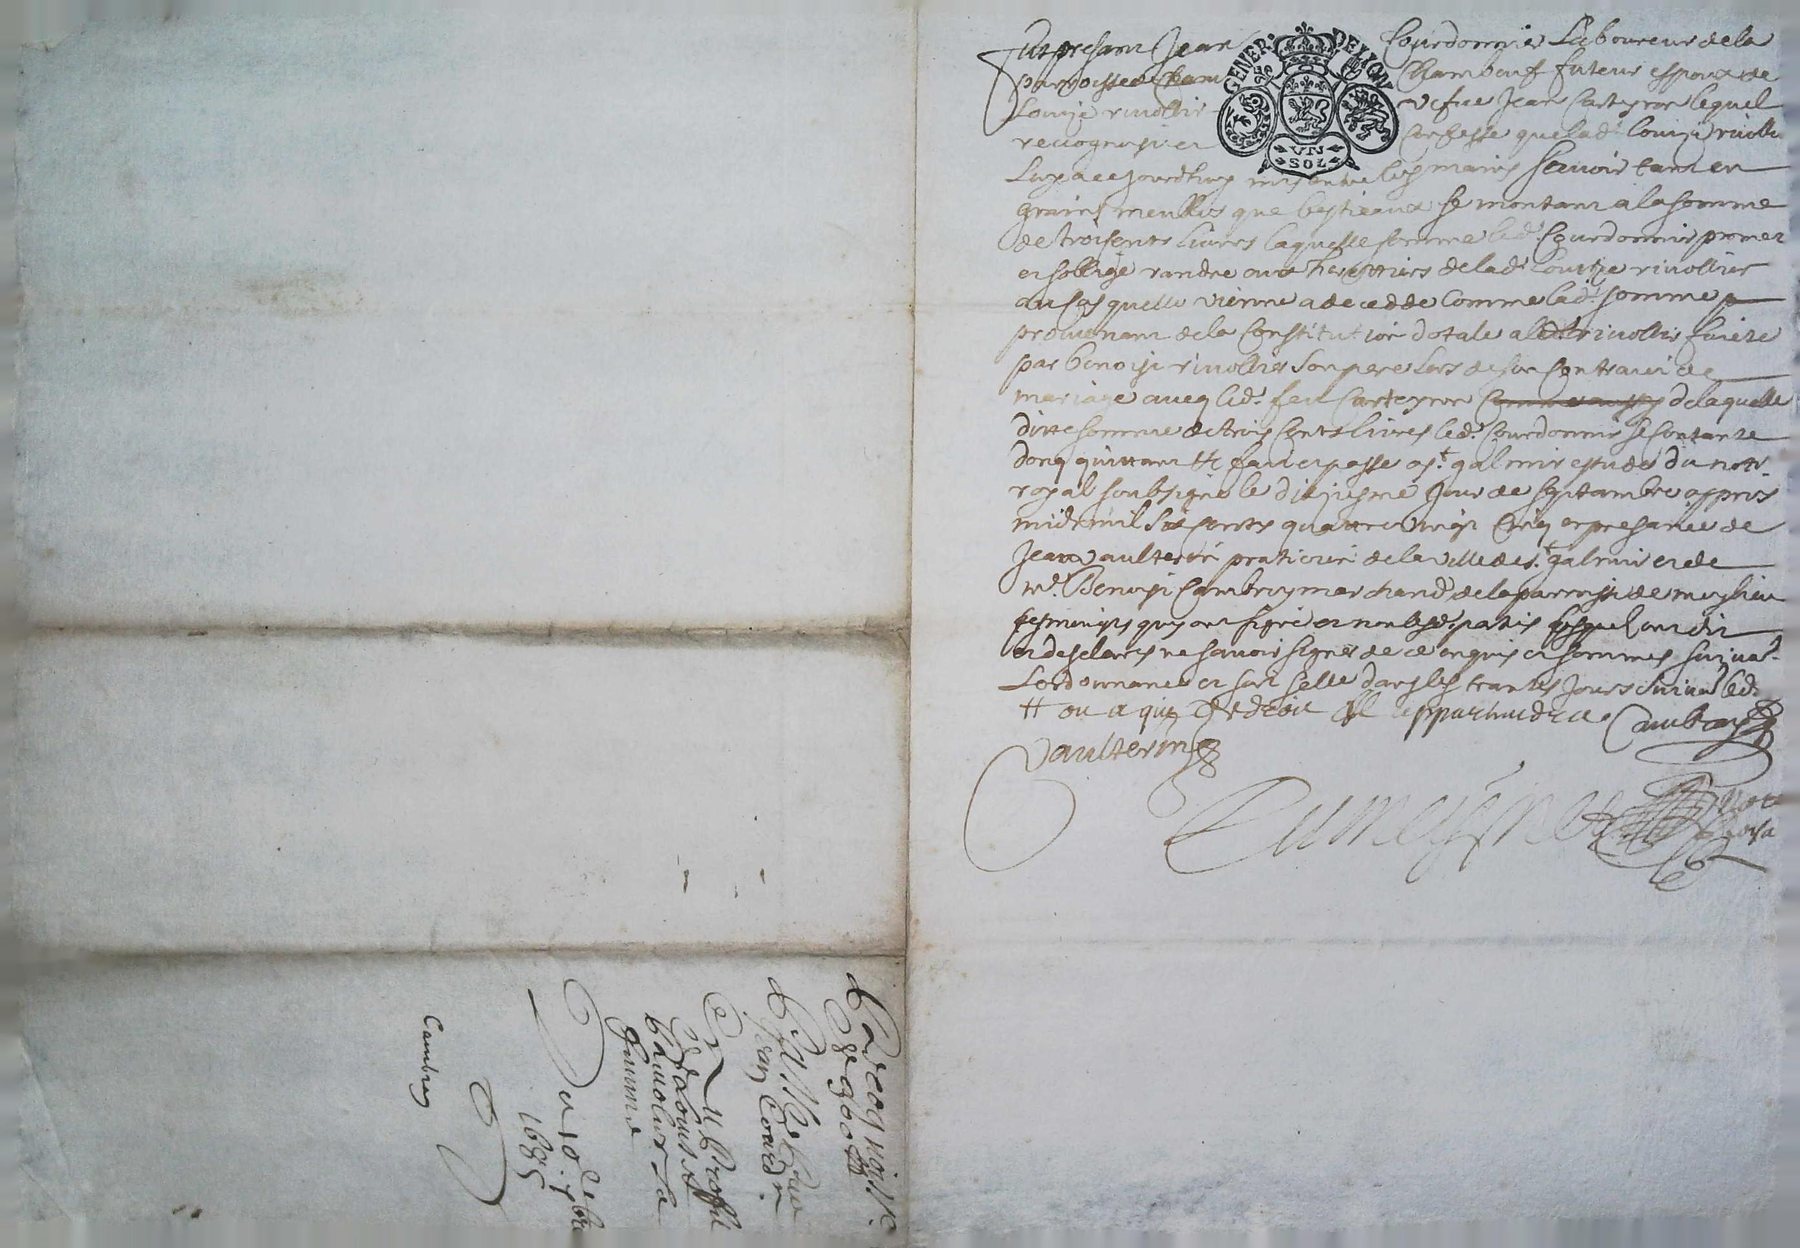 Fut presant Jean Courdonnier Laboureur de la
parroisse de Chambeuf futeur espoux de
Louize rivollier vefve Jean Carteyron lequel
recognoist et Confesse que lad. louize rivollier
Luy a ce jourdhuy mis entre les mains scavoir tant en
grains meubles que bestieaux se montant a la somme
de troisents livres laquelle somme led. Courdonnier promet
et soblige randre aux heyrittiers de lad. Louize rivollier
au Cas quelle vienne a decedde Comme lad. somme p
provenant de la Constitution dotale a rivollier faicte
par benoist rivollier son pere Lors de son Contrauct de
mariage avecq led. feu Carteyron de laquelle
ditte somme de trois Cents livres led. Courdonnier se Contante
donq quittant # fait et passe a st. galmier estude du nottre
royal soubsigne le dixiesme Jour de septambre appres
midy mil six Cents quattre vingt Cinq en presance de
Jean Vaulterin praticien de la ville de st. galmier et de
mr. Benoist Cambray marchand de la parroisse de
tesmoings quy ont signe et non lesd. parties lesquels ont dit
et desclaires ne savoir signer de ce enquis et sommes suivat.
Lordonnance et sera selle dans les trantes Jours suivat led.
# ou a quy de droit il appartiendra Cambray
Vaulterin
Dumeysne not
royal
Recognoissce.
De 300 ll
Jean Courd.
Du Proffit
De Louise
Rivolier Sa
femme
Du 10. 7bre
1685
Cambray
GENER. DE LION
UN
SOL